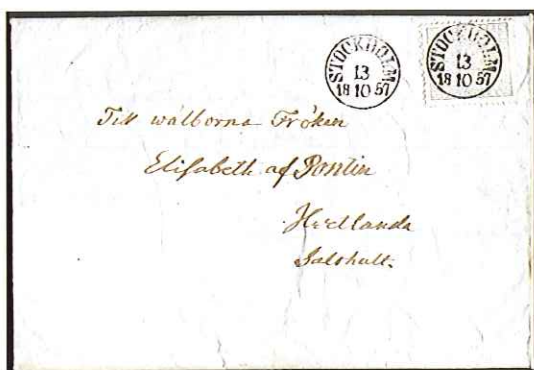 STOCKHOLM
13
18 10 57
STOCKHOLM
13
18 10 57
Till wälborna Fröken
Elisabeth af Pontin
Hvetlanda